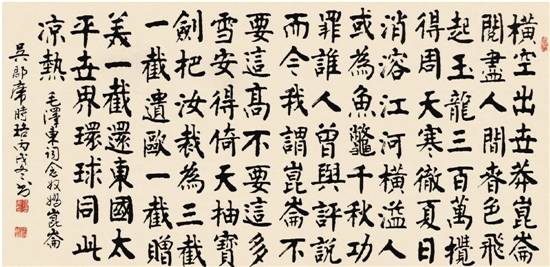 橫空出世莽崑崙
閱盡人間春色飛
起玉龍三百萬攪
得周天寒徹夏日
消溶江河橫溢人
或為魚鼈千秋功
罪誰人曾與評說
而今我謂崑崙不
要這高不要這多
雪安得倚天抽寶
劍把汝裁為三截
一截遺歐一截贈
美一截還東國太
平世界環球同此
凉熱
毛澤東詞念奴嬌崑崙
吳郡席時珞丙戌冬書